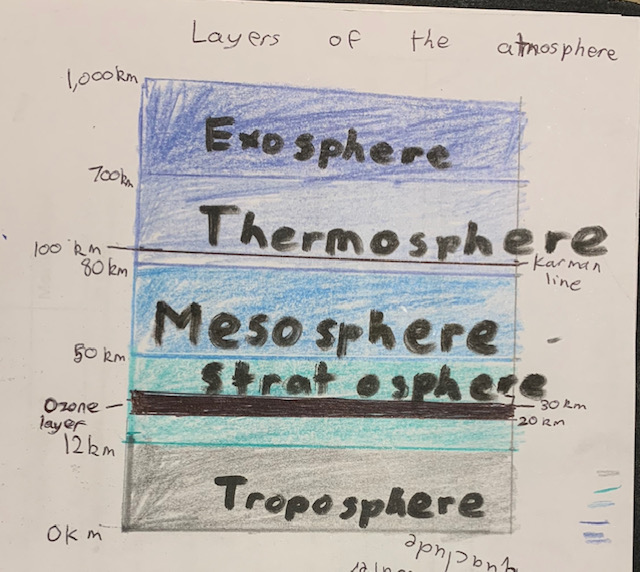 Layers of the atmosphere
1,000km
Exosphere
700km
Thermosphere
100 km
Karman
line
80km
Mesosphere
50km
Stratosphere
Ozone
layer
30km
20km
12km
Troposphere
0km